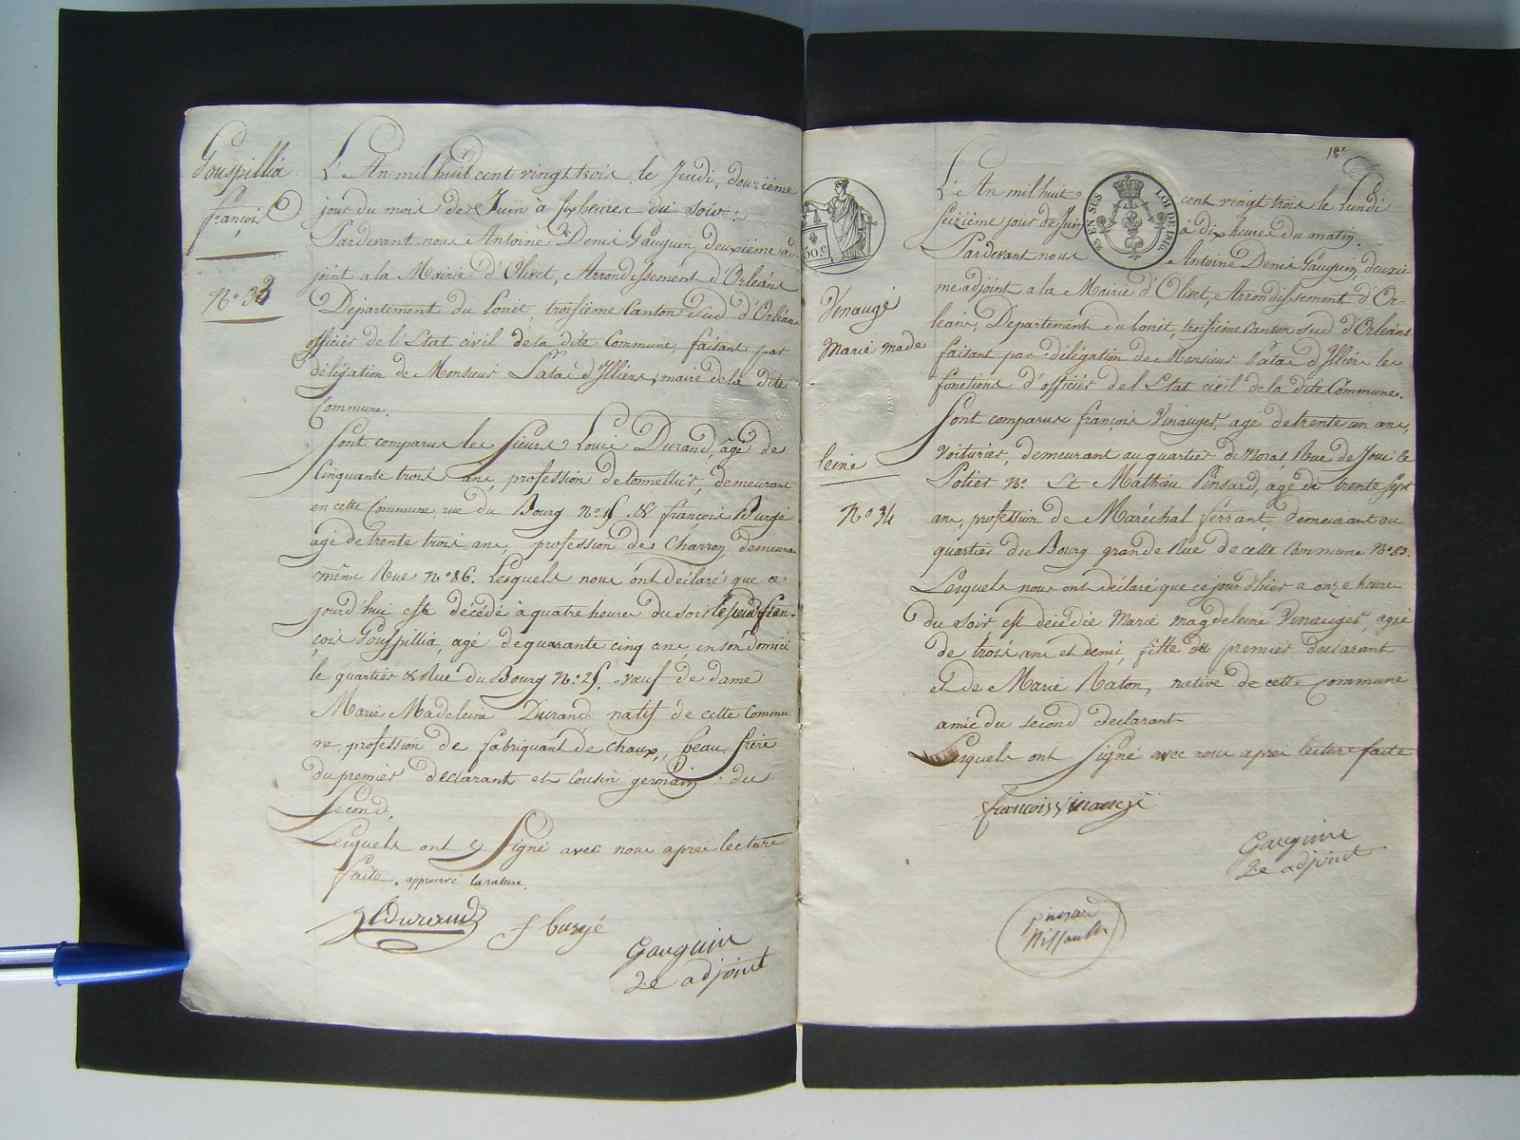 Gouspillia
françois
N° 33
L'An mil huit cent vingt trois le Jeudi, douzième
jour du mois de Juin à six heures du soir.
Pardevant nous Antoine Denis Gauguin, deuxième ad-
joint a la Mairie d'Olivet, Arrondissement d'Orléans
Département du Loiret, troisième Canton Sud d'Orléans
officier de l'Etat civil de la dite Commune, faisant par
délégation de Monsieur Patas d'Illiers, maire de la dite
Commune.
Sont comparus les sieurs Louis Durand, âgé de
Cinquante trois ans, profession de tonnellier, demeurant
en cette Commune, rue du Bourg N° & françois Burgé
agé de trente trois ans profession de Charron demeurant
même Rue N° 86. Lesquels nous ont déclaré que ce
jourd'hui est décédé à quatre heures du soir le sieur fran-
çois Gouspillia, agé de quarante cinq ans, en son domici
le quartier & Rue du Bourg N° 25. veuf de dame
Marie Madeleine Durand natif de cette Commu
ne profession de fabriquant de chaux, beau frère
du premier déclarant et Cousin germain du
second.
Lesquels ont signé avec nous après lecture
faite. approuvé la rature.
Durand
f burgé
Gauguin
2e adjoint
18e
EN SES
LOI DE 1816
50 c
L'An mil huit cent vingt trois le Lundi
seizième jour de Juin a dix heures du matin.
Pardevant nous Antoine Denis Gauguin deuxiè
me adjoint a la Mairie d'Olivet, Arrondissement d'Or-
léans, Département du Loiret, troisième Canton Sud d'Orléans
faisant par délégation de Monsieur Patas d'Illiers les
fonctions d'officier de l'Etat civil de la dite Commune.
Vinauge
Marie made
leine
N° 34
Sont comparus françois Vinauger, agé de trente un ans,
Voiturier, demeurant au quartier de Noras Rue de Joui le
Potier N° Et Mathieu Pinsard, agé de trente sept
ans, profession de Maréchal ferrant, demeurant au
quartier du Bourg grande Rue de cette Commune N° 83.
Lesquels nous ont déclaré que ce jour d'hier a onze heures
du soir est décédée Marie magdeleine Vinauger, agée
de trois ans et demi, fille du premier déclarant
et de Marie Raton, native de cette Commune
amie du second déclarant
Lesquels ont signé avec nous après lecture faite
francois Vinaugé
Gauguin
2e adjoint
pinsard